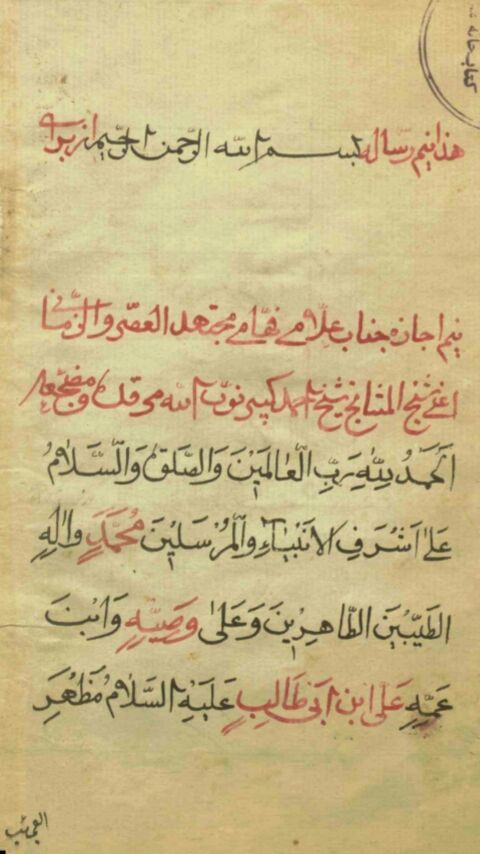 كتابخانه
هذا نیم رساله بسم الله الرحمن الرحیم از برای
نیم اجازه جناب علامی فهامی مجتهد العصر والزمانی
اعنی شیخ المشایخ شیخ احمد کبیر نور الله مرقده و مضجعه
اَلْحَمْدُ لِلّٰهِ رَبِّ الْعالَمِیْنَ وَالصَّلوٰةُ وَالسَّلامُ
عَلیٰ اَشْرَفِ الاَنْبِیاءِ وَالْمُرْسَلِیْنَ مُحَمَّدٍ وَاٰلِهِ
الطَّیِّبِیْنَ الطّاهِرِیْنَ وَعَلیٰ وَصِیِّهِ وَابْنِ
عَمِّهِ عَلی ابْنِ اَبی طَالِبٍ عَلَیْهِ السَّلامُ مَظْهَرِ
العجائب